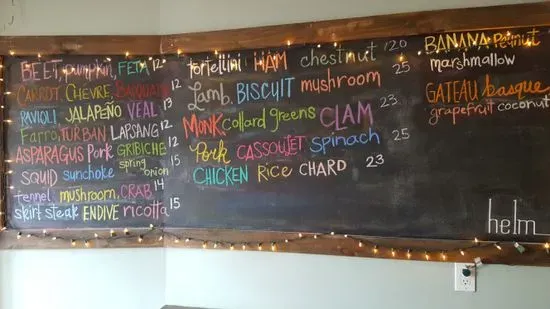 BEET, pumpkin, FETA 12
CARROT, CHEVRE, 12
RAVIOLI JALAPEÑO VEAL 13
Farro, TURBAN LAPSANG 12
ASPARAGUS Pork GRIBICHE 12
SQUID sunchoke spring onion 15
fennel mushroom, CRAB 14
skirt steak ENDIVE ricotta 15
tortellini HAM chestnut 20
Lamb, BISCUIT mushroom 25
MONK collard greens CLAM 23
Pork CASSOULET Spinach 25
CHICKEN Rice CHARD 23
BANANA Peanut
marshmallow
GATEAU basque
grapefruit coconut
helm